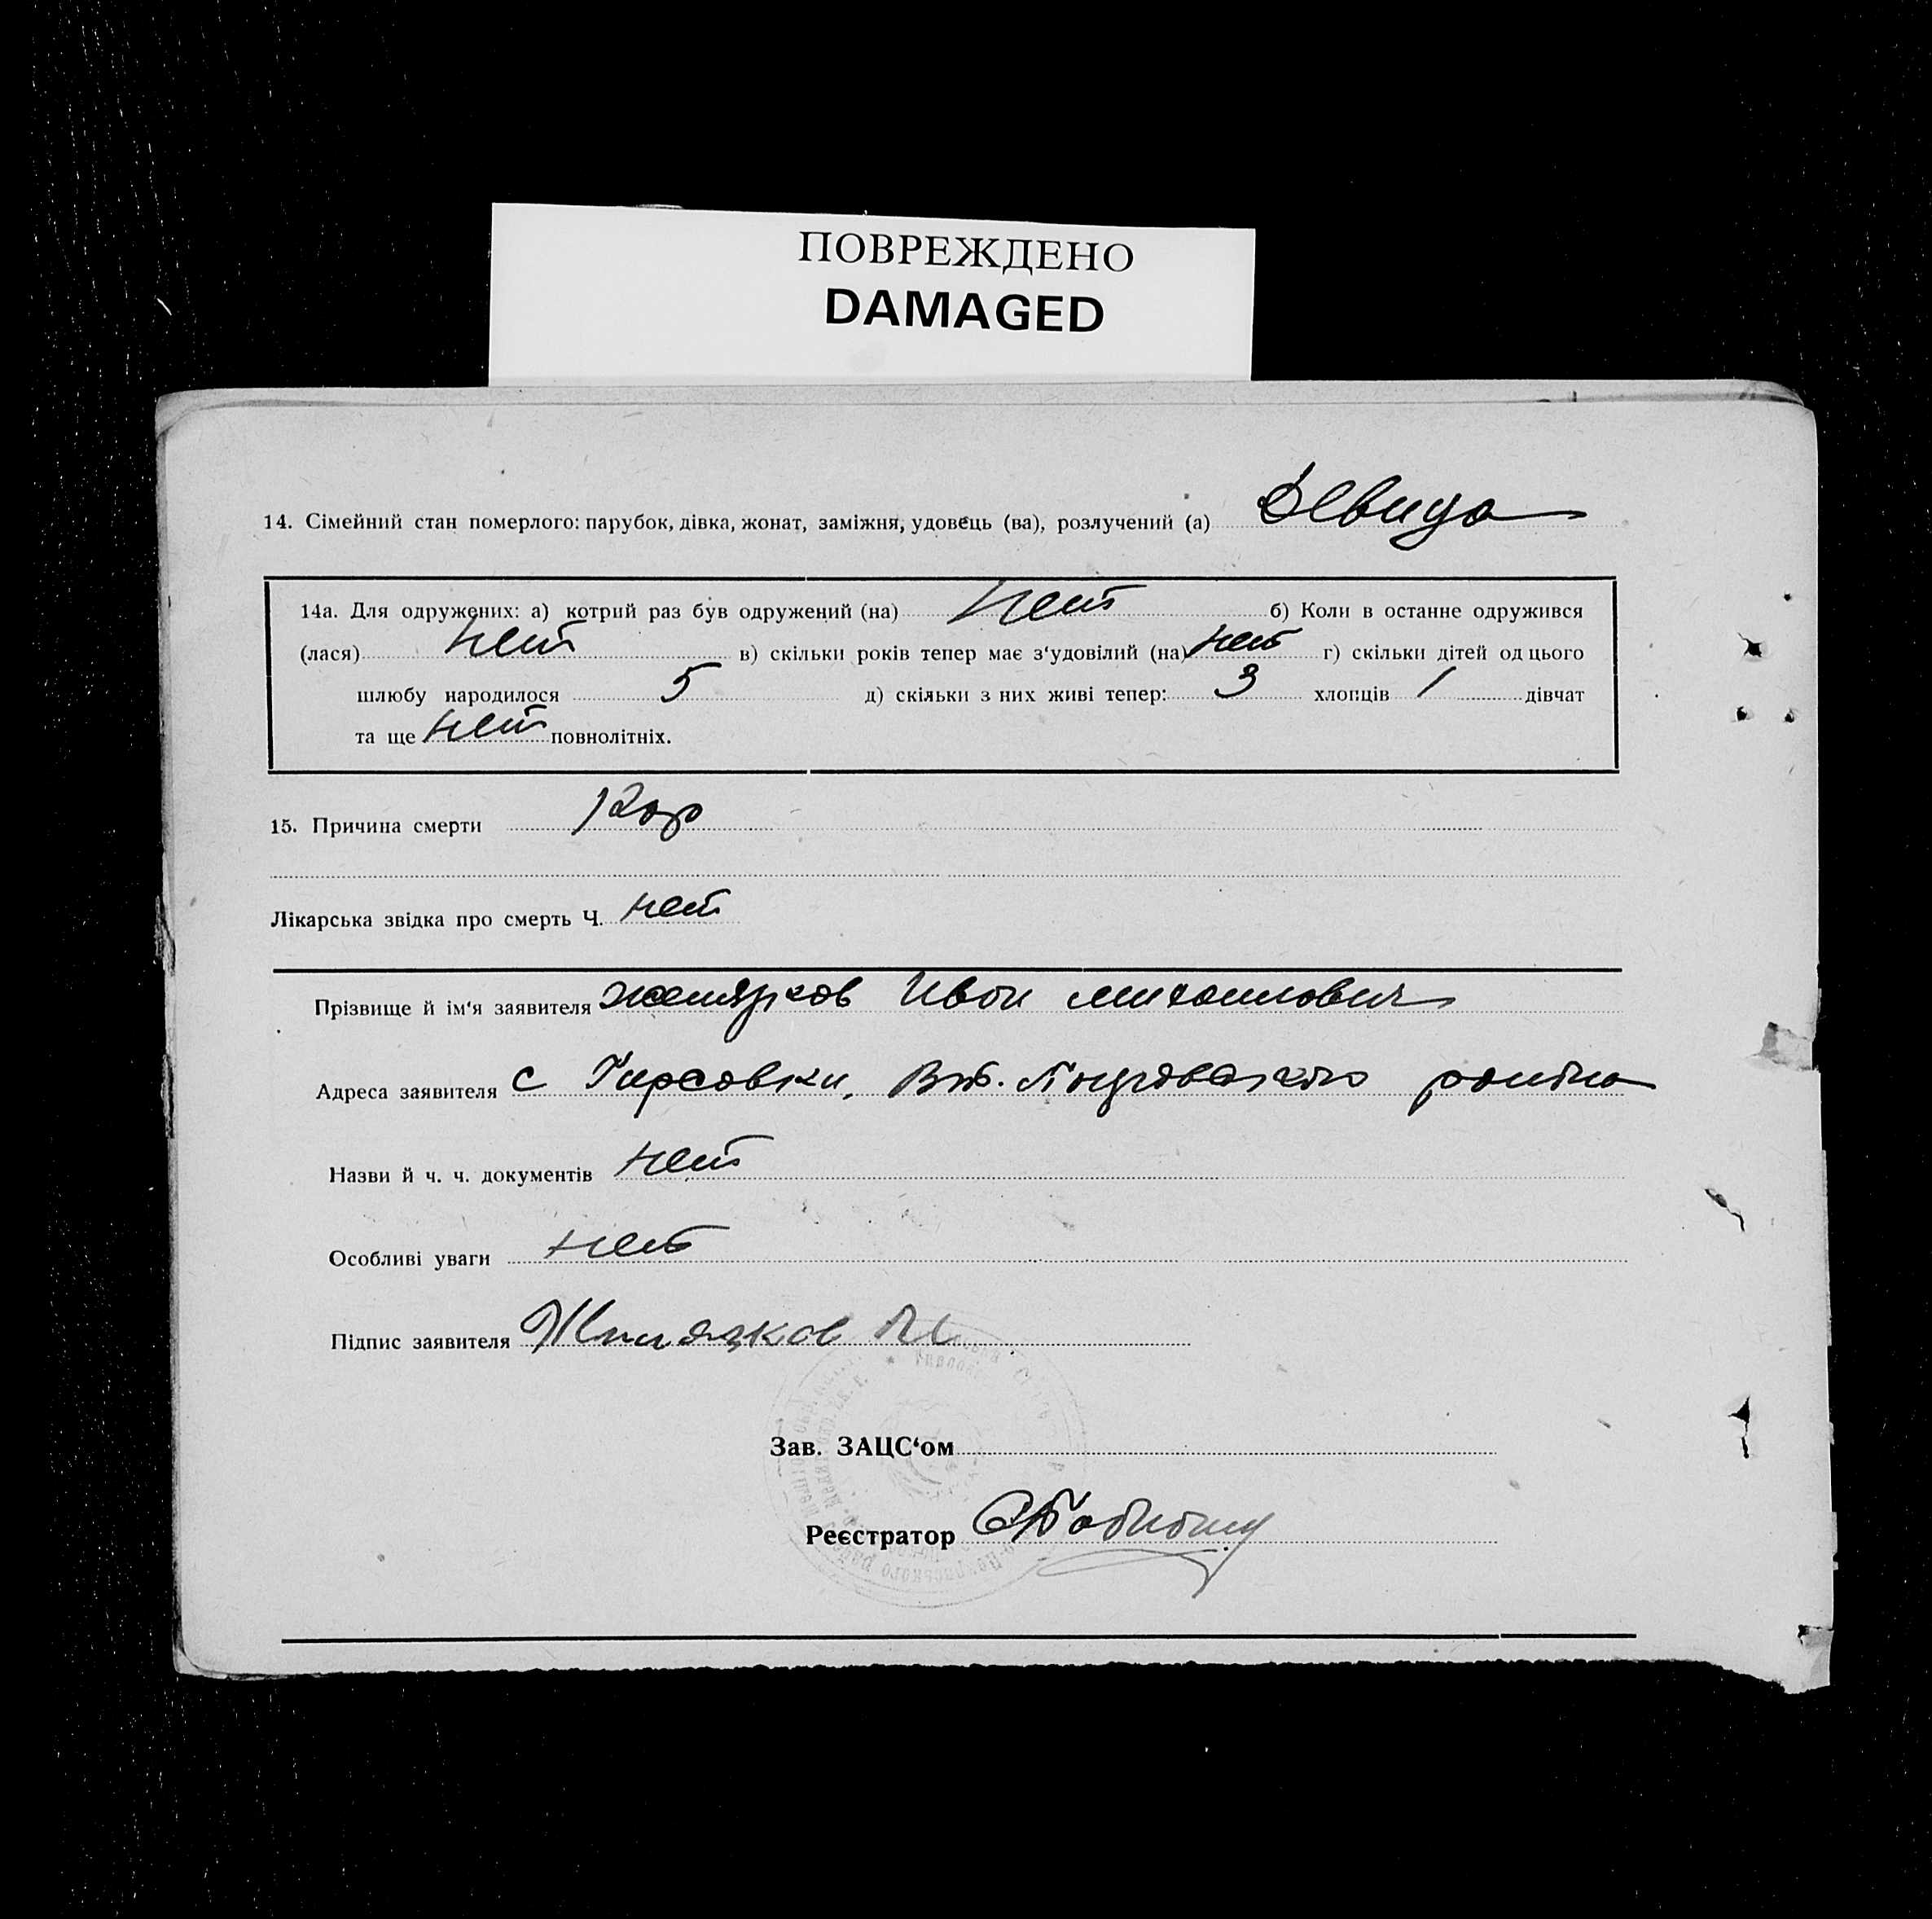 ПОВРЕЖДЕНО
DAMAGED
14. Сімейний стан померлого: парубок, дівка, жонат, заміжня, удовець (ва), розлучений (а) Девица
14а. Для одружених: а) котрий раз був одружений (на) нет б) Коли в останне одружився
(лася) нет в) скільки років тепер має з‘удовілий (на) нет г) скільки дітей од цього
шлюбу народилося 5 д) скільки з них живі тепер: 3 хлопців 1 дівчат
та ще нет повнолітніх.
15. Причина смерти Кор
Лікарська звідка про смерть Ч. нет
Прізвище й ім‘я заявителя Иван Михайлович
Адреса заявителя с Кирсовки, района
Назви й ч. ч. документів нет
Особливі уваги нет
Підпис заявителя
Зав. ЗАЦС‘ом
Реєстратор